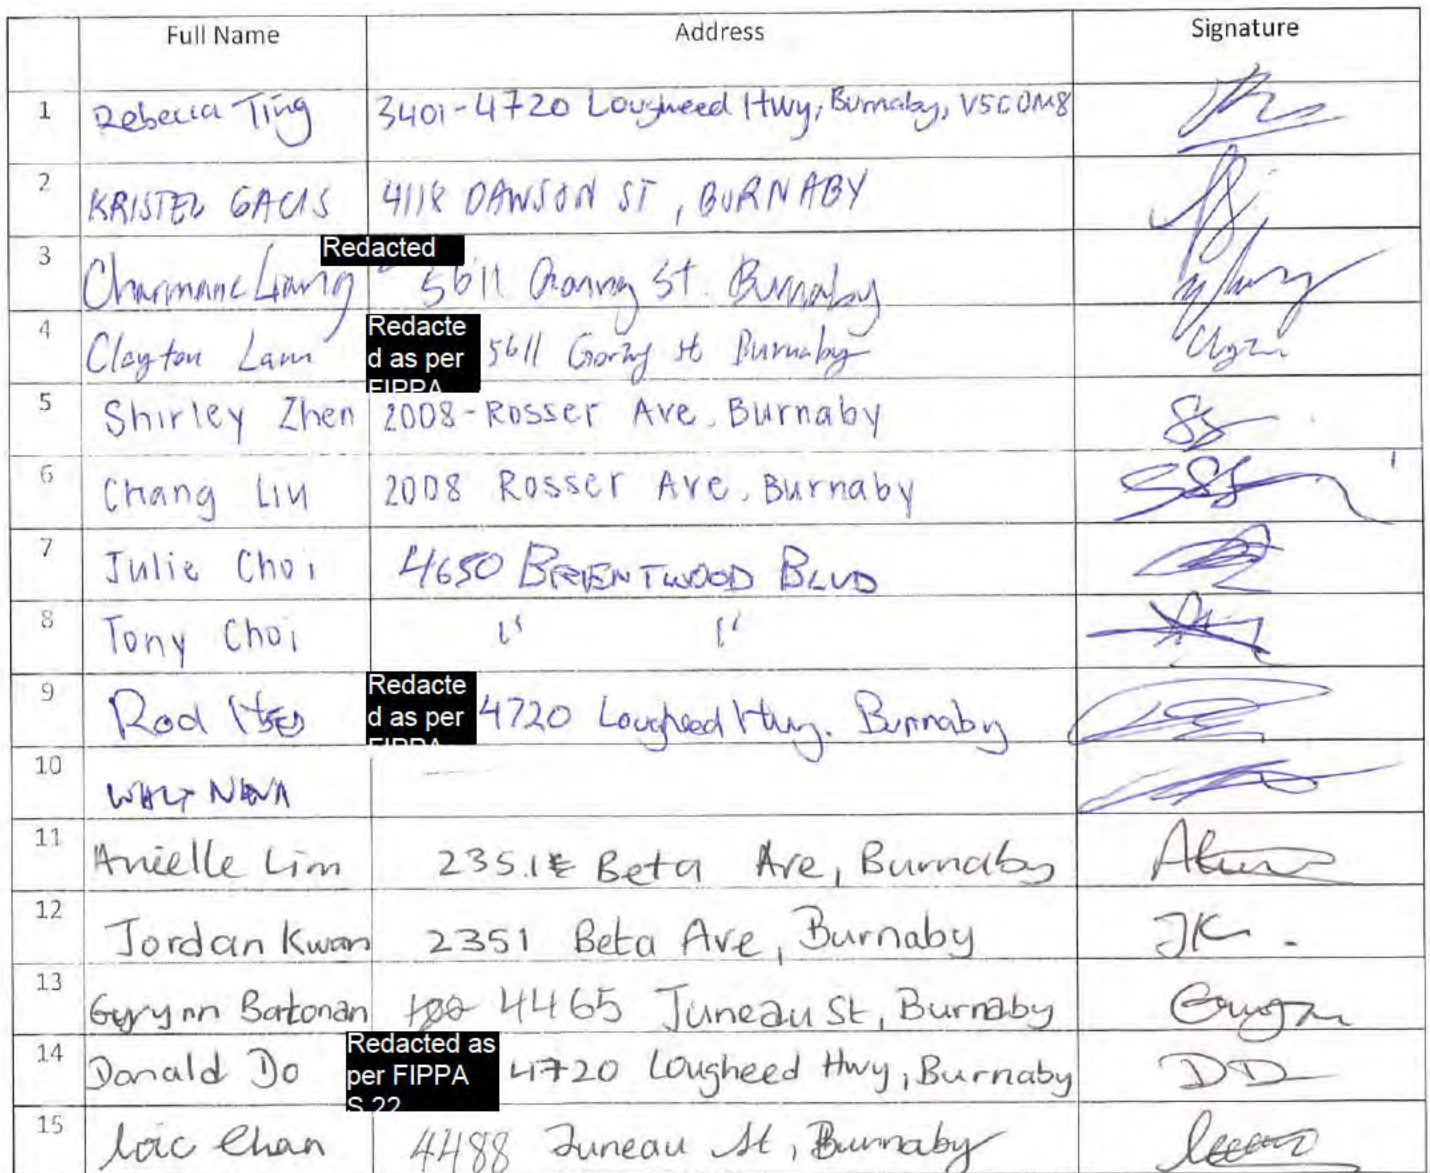 Full Name Address Signature
1 Rebecca Ting 3401-4720 Lougheed Hwy, Burnaby, V5C0M8
2 KRISTEL GACIS 4118 DAWSON ST, BURNABY
Redacted
3 Charmane Liang 5611 St. Burnaby
4 Clayton Lam Redacte
d as per
FIPPA
5611 St Burnaby
5 Shirley Zhen 2008-Rosser Ave, Burnaby
6 Chang Liu 2008 Rosser Ave, Burnaby
7 Julie Choi 4650 BRENTWOOD BLVD
8 Tony Choi " "
9 Rod Redacte
d as per
FIPPA
4720 Lougheed Hwy. Burnaby
10 WALT
11 Arielle Lim 2351 Beta Ave, Burnaby
12 Jordan Kwan 2351 Beta Ave, Burnaby JK
13 Batonan 4465 Juneau St, Burnaby
14 Donald Do Redacted as
per FIPPA
S.22
4720 Lougheed Hwy, Burnaby DD
15 Loic Chan 4488 Juneau St, Burnaby